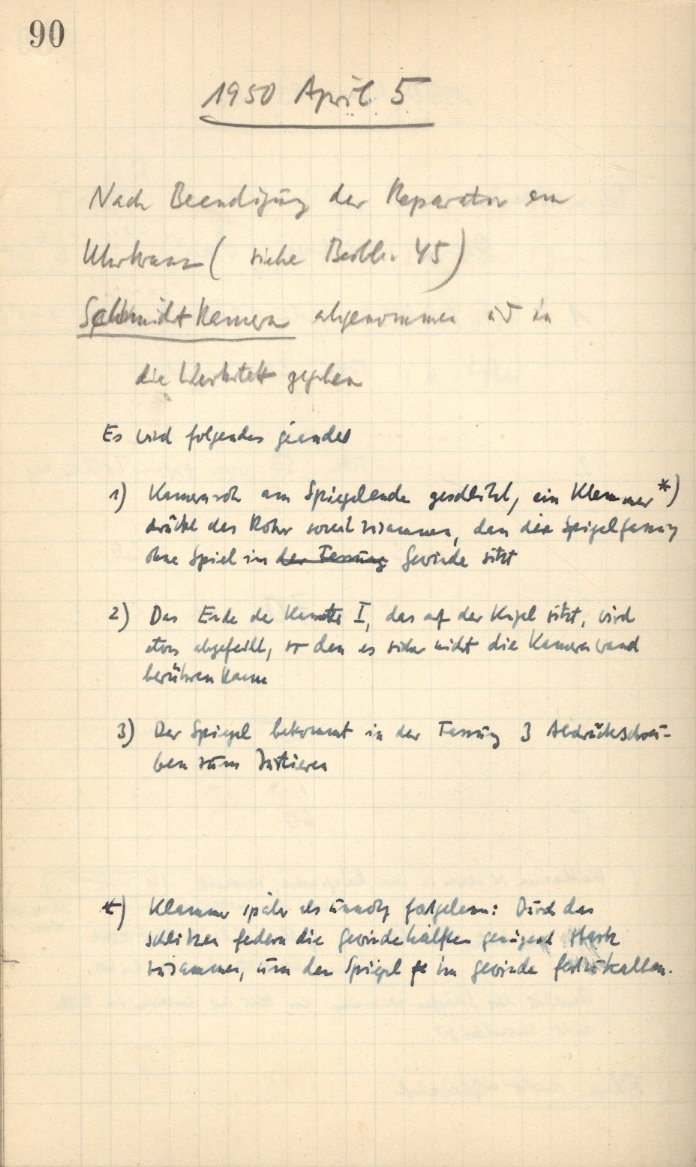 90
1950 April 5
Nach Beendigung der Reparatur am
Uhrkranz (siehe Beobb. 45)
Schmidt Kamera abgenommen und in
die Werkstatt gegeben
Es wird folgendes geändert
1) Kamerarohr am Spiegelende geschlitzt, ein Klemmer *)
drückt das Rohr soweit zusammen, dass die Spiegelfassung
ohne Spiel im der Fassung Gewinde sitzt
2) Das Ende der I, das auf der Kugel sitzt, wird
etwas abgefeilt, so dass es sicher nicht die Kamerawand
berühren kann
3) Der Spiegel bekommt in der Fassung 3 Abdrückschrau-
ben zum Justieren
*) Klammer später als unnötig fortgelassen: Durch das
schlitzen federn die Gewindehälften genügend stark
zusammen, um den Spiegel im Gewinde festzuhalten.